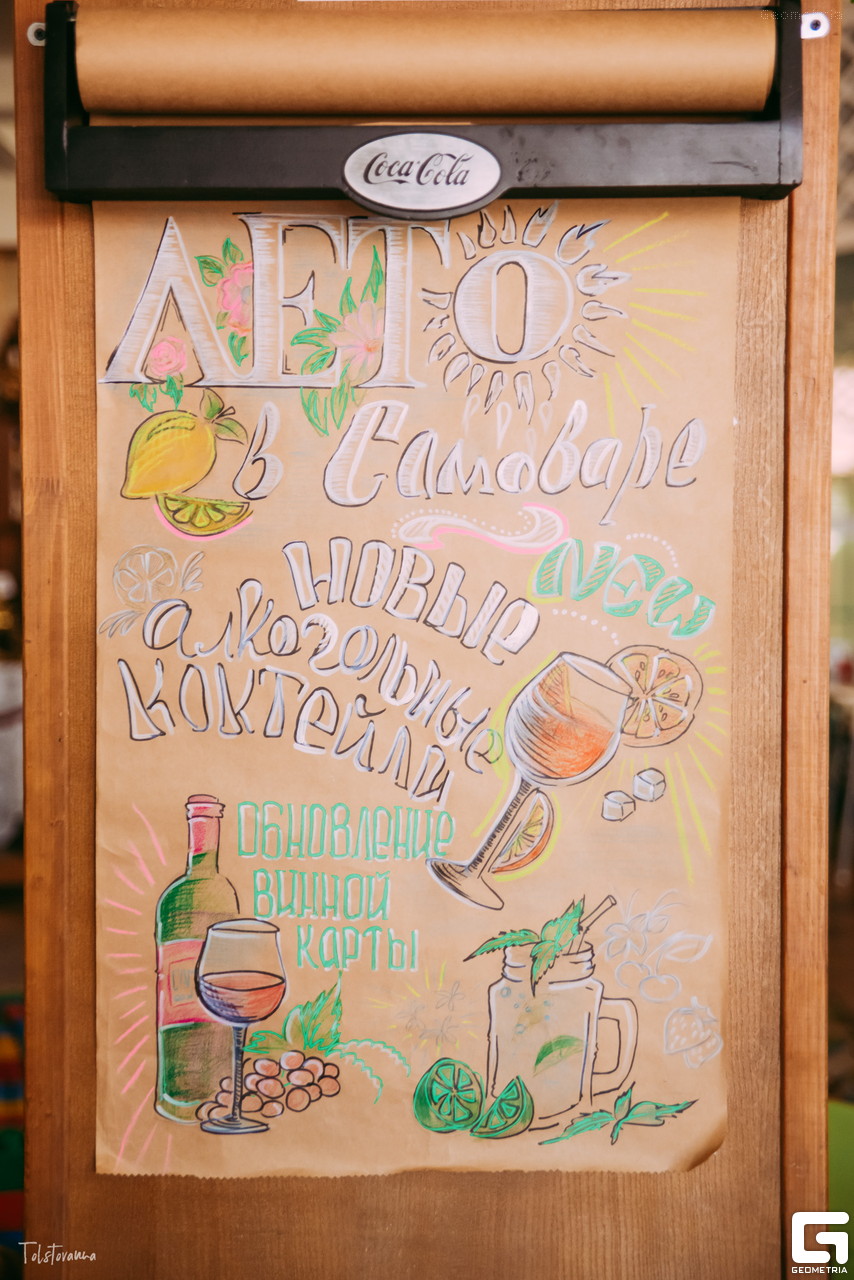 Geometria
Coca-Cola
ЛЕТО
в Самоваре
NEW
НОВЫЕ
алкогольные
коктейли
ОБНОВЛЕНИЕ
ВИННОЙ
КАРТЫ
Tolstovanna
GEOMETRIA